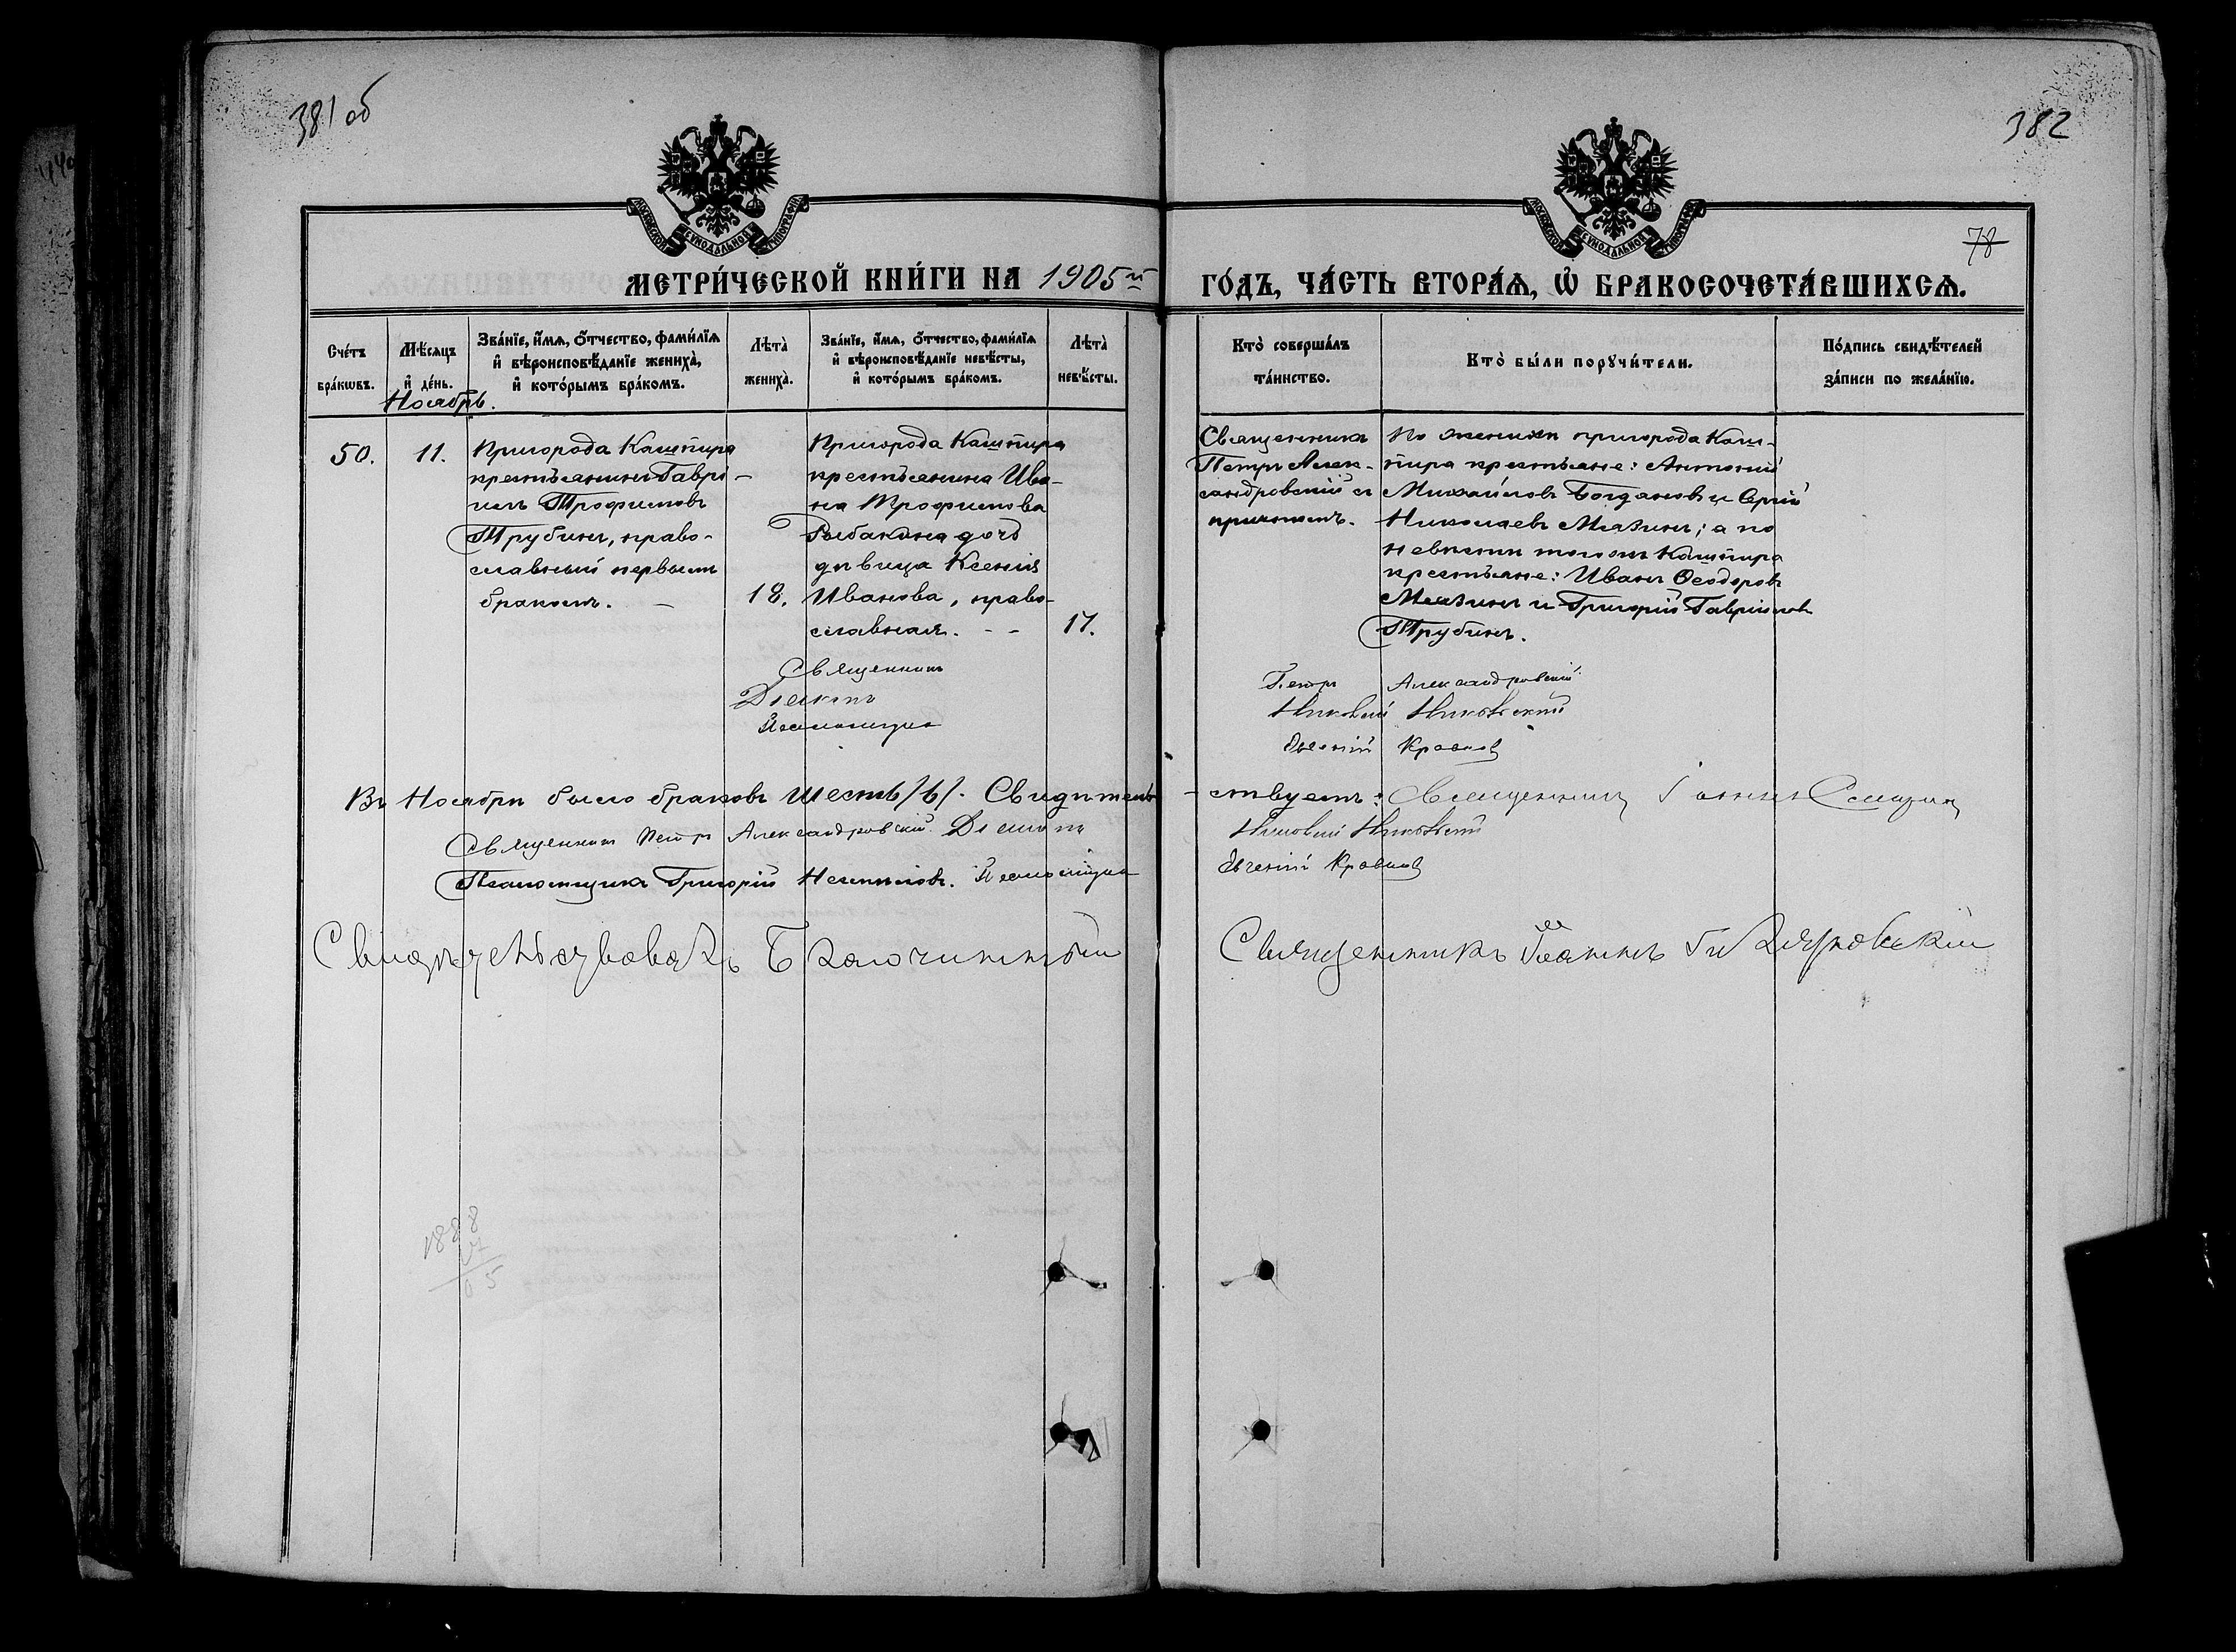 381 об
382
78
МЕТРИ́ЧЕСКОЙ КНИ́ГИ НА 1905й
ГО́ДЪ, ЧА́СТЬ ВТОРА́Ѧ, Ѡ҆ БРАКОСОЧЕТА́ВШИХСѦ.
Сче́тъ бра́кѡвъ.
Мѣ́сѧцъ и҆ де́нь.
Зва́нїе, и҆́мѧ, ѻ҆́тчество, фами́лїѧ
и҆ вѣроисповѣ́данїе жениха̀,
и҆ кото́рымъ бра́комъ.
Лѣ́та̀ жениха̀.
Зва́нїе, и҆́мѧ, ѻ҆́тчество, фами́лїѧ
и҆ вѣроисповѣ́данїе невѣ́сты,
и҆ кото́рымъ бра́комъ.
Лѣ́та̀ невѣ́сты.
Кто̀ соверша́лъ та́инство.
Кто̀ бы́ли порꙋчи́тели.
По́дпись свидѣ́телей за́писи по жела́нїю.
Ноябрь.
50.
11.
Пригорода Кашпира
крестьянинъ Гаврі-
илъ Трофимовъ
Трубинъ, право-
славный первымъ
бракомъ. -
18.
Пригорода Кашпира
крестьянина Ива-
на Трофимова
Рыбакина дочь
дѣвица Ксенія
Иванова, право-
славная. - -
17.
Священникъ
Петръ Алек-
сандровскій съ
причтомъ.
По женихѣ пригорода Каш-
пира крестьяне: Антоній
Михайловъ Богдановъ и Сергій
Николаевъ Мазинъ; а по
невѣстѣ того жъ Кашпира
крестьяне: Иванъ Ѳеодоровъ
Мазинъ и Григорій Гавріиловъ
Трубинъ.
Священникъ Петръ Александровскій.
Діаконъ
Псаломщикъ Евгеній
Въ Ноябрѣ было браковъ шесть /6/. Свидѣтель-
ствуетъ: Священникъ Іоаннъ
Священникъ Петръ Александровскій. Діаконъ
Псаломщикъ Григорій Псаломщикъ Евгеній
Свидѣтельствовалъ Благочинный Священникъ Іоаннъ
1888
17
05